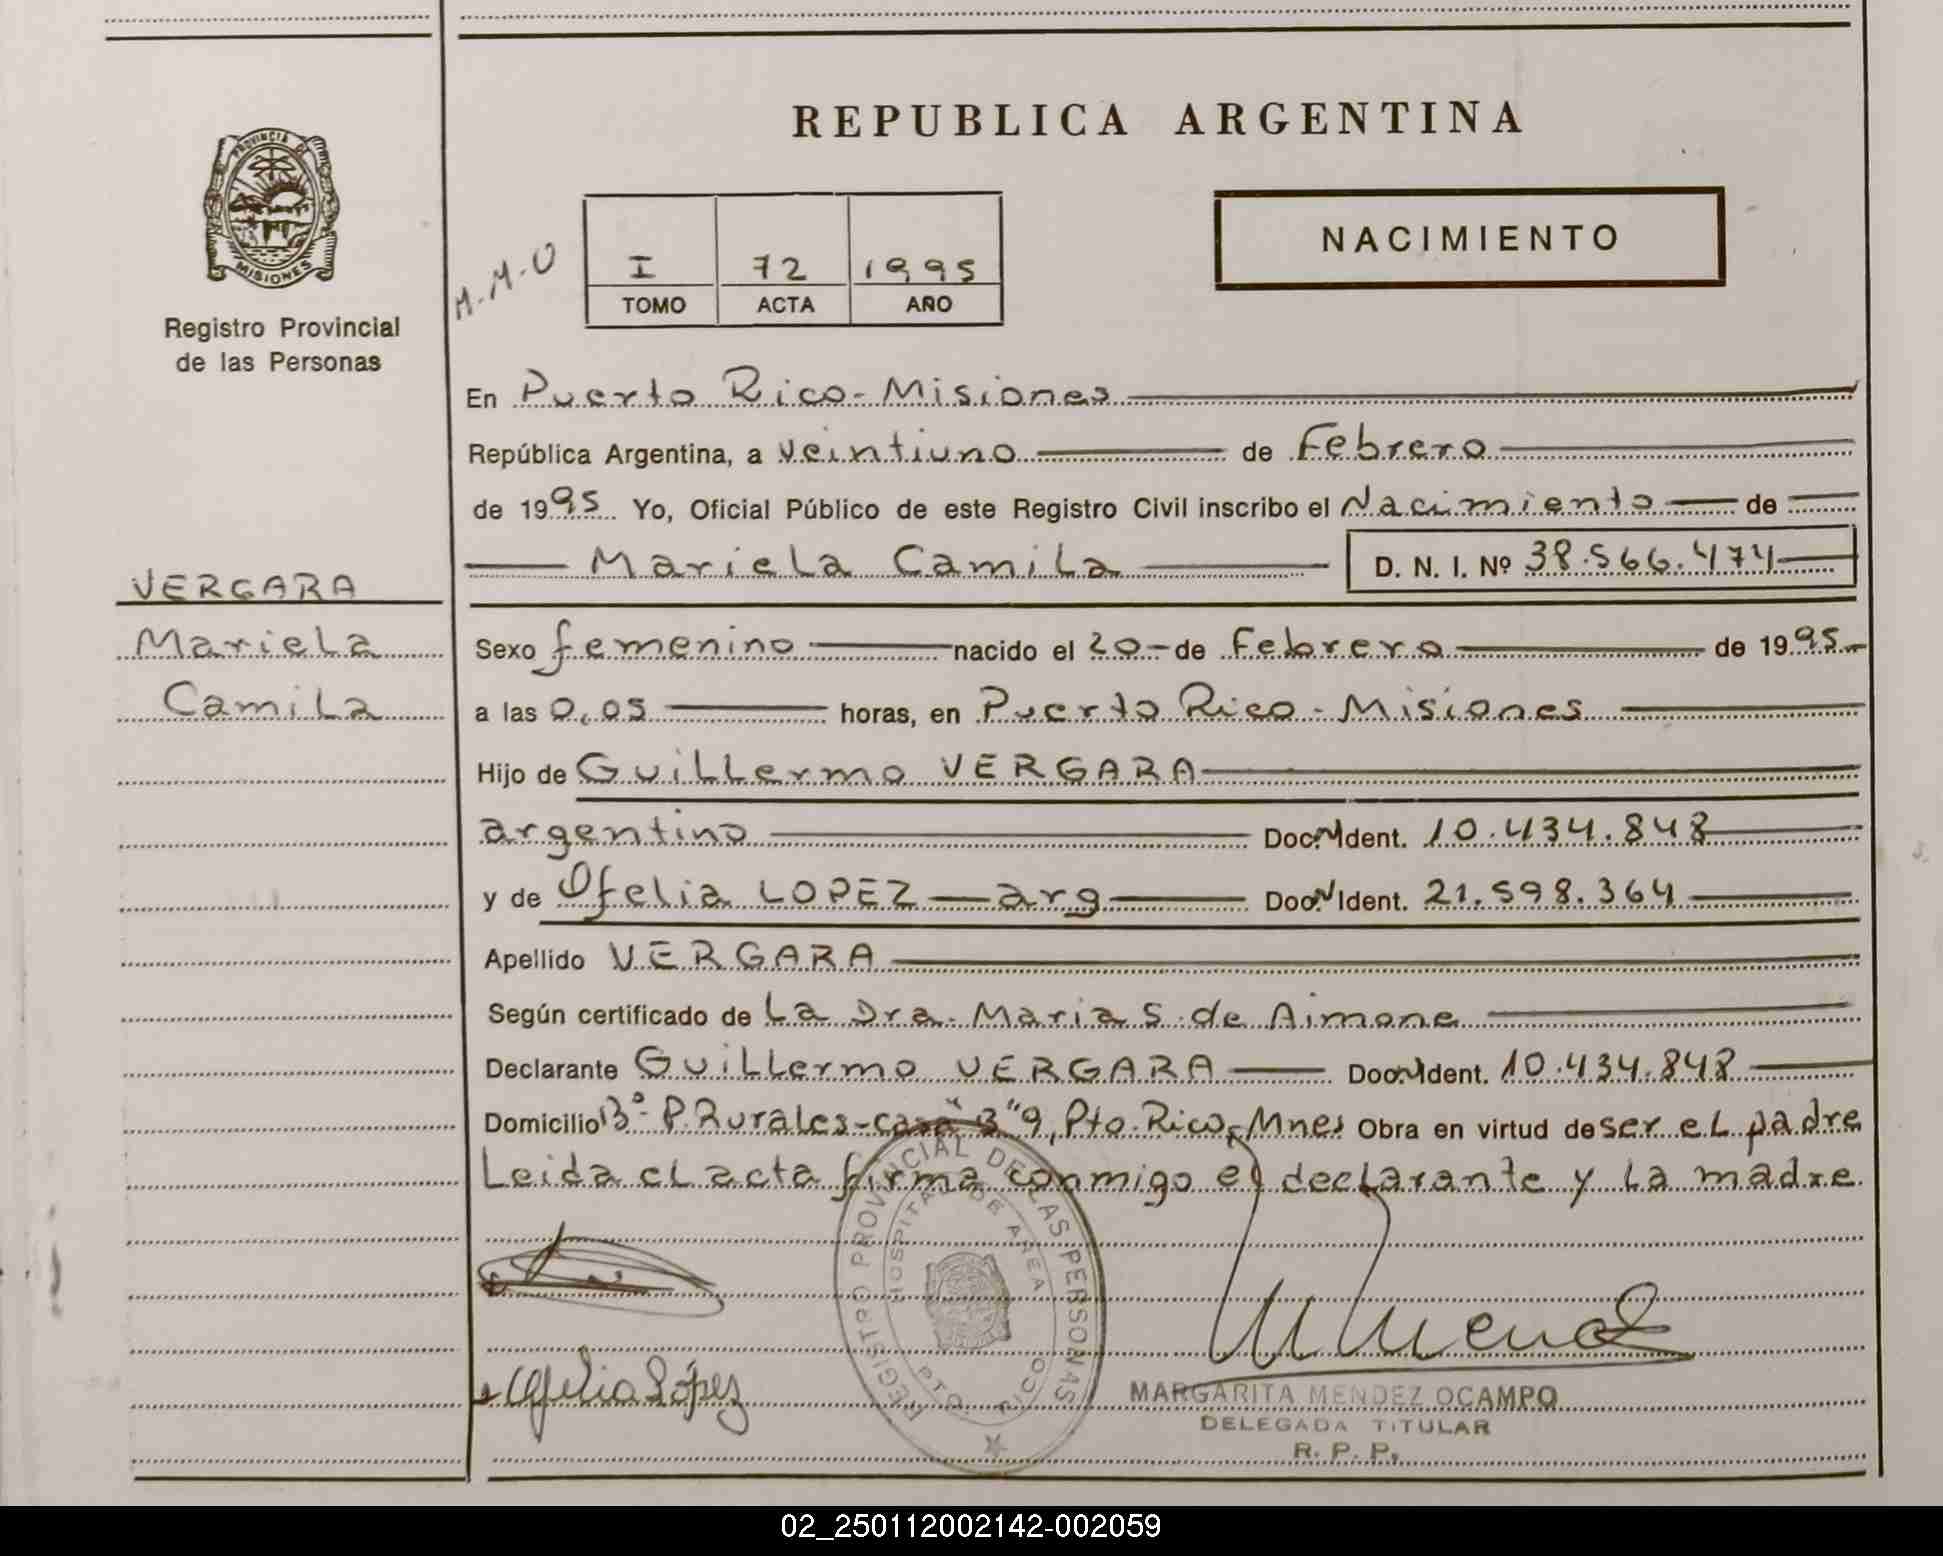 REPUBLICA ARGENTINA
PROVINCIA DE MISIONES
Registro Provincial
de las Personas
M.M.O
I 72 1995
TOMO ACTA AÑO
NACIMIENTO
En Puerto Rico - Misiones
República Argentina, a veintiuno de Febrero
de 1995 Yo, Oficial Público de este Registro Civil inscribo el Nacimiento de
Mariela Camila D. N. I. Nº 38.566.474
VERGARA
Mariela
Camila
Sexo femenino nacido el 20 - de Febrero de 1995
a las 0,05 horas, en Puerto Rico - Misiones
Hijo de Guillermo VERGARA
argentino Doc. N Ident. 10.434.848
y de Ofelia LOPEZ — arg Doc. N Ident. 21.598.364
Apellido VERGARA
Según certificado de La Dra. Maria S. de Aimone
Declarante Guillermo VERGARA Doc. N Ident. 10.434.848
Domicilio Bº - P. Rurales - casa "3" 9, Pto. Rico, Mnes Obra en virtud de ser el padre
Leida el acta firma conmigo el declarante y la madre
REGISTRO PROVINCIAL DE LAS PERSONAS
HOSPITAL DE AREA
PTO. RICO
Ofelia López
M Mendez
MARGARITA MENDEZ OCAMPO
DELEGADA TITULAR
R. P. P.
02_250112002142-002059